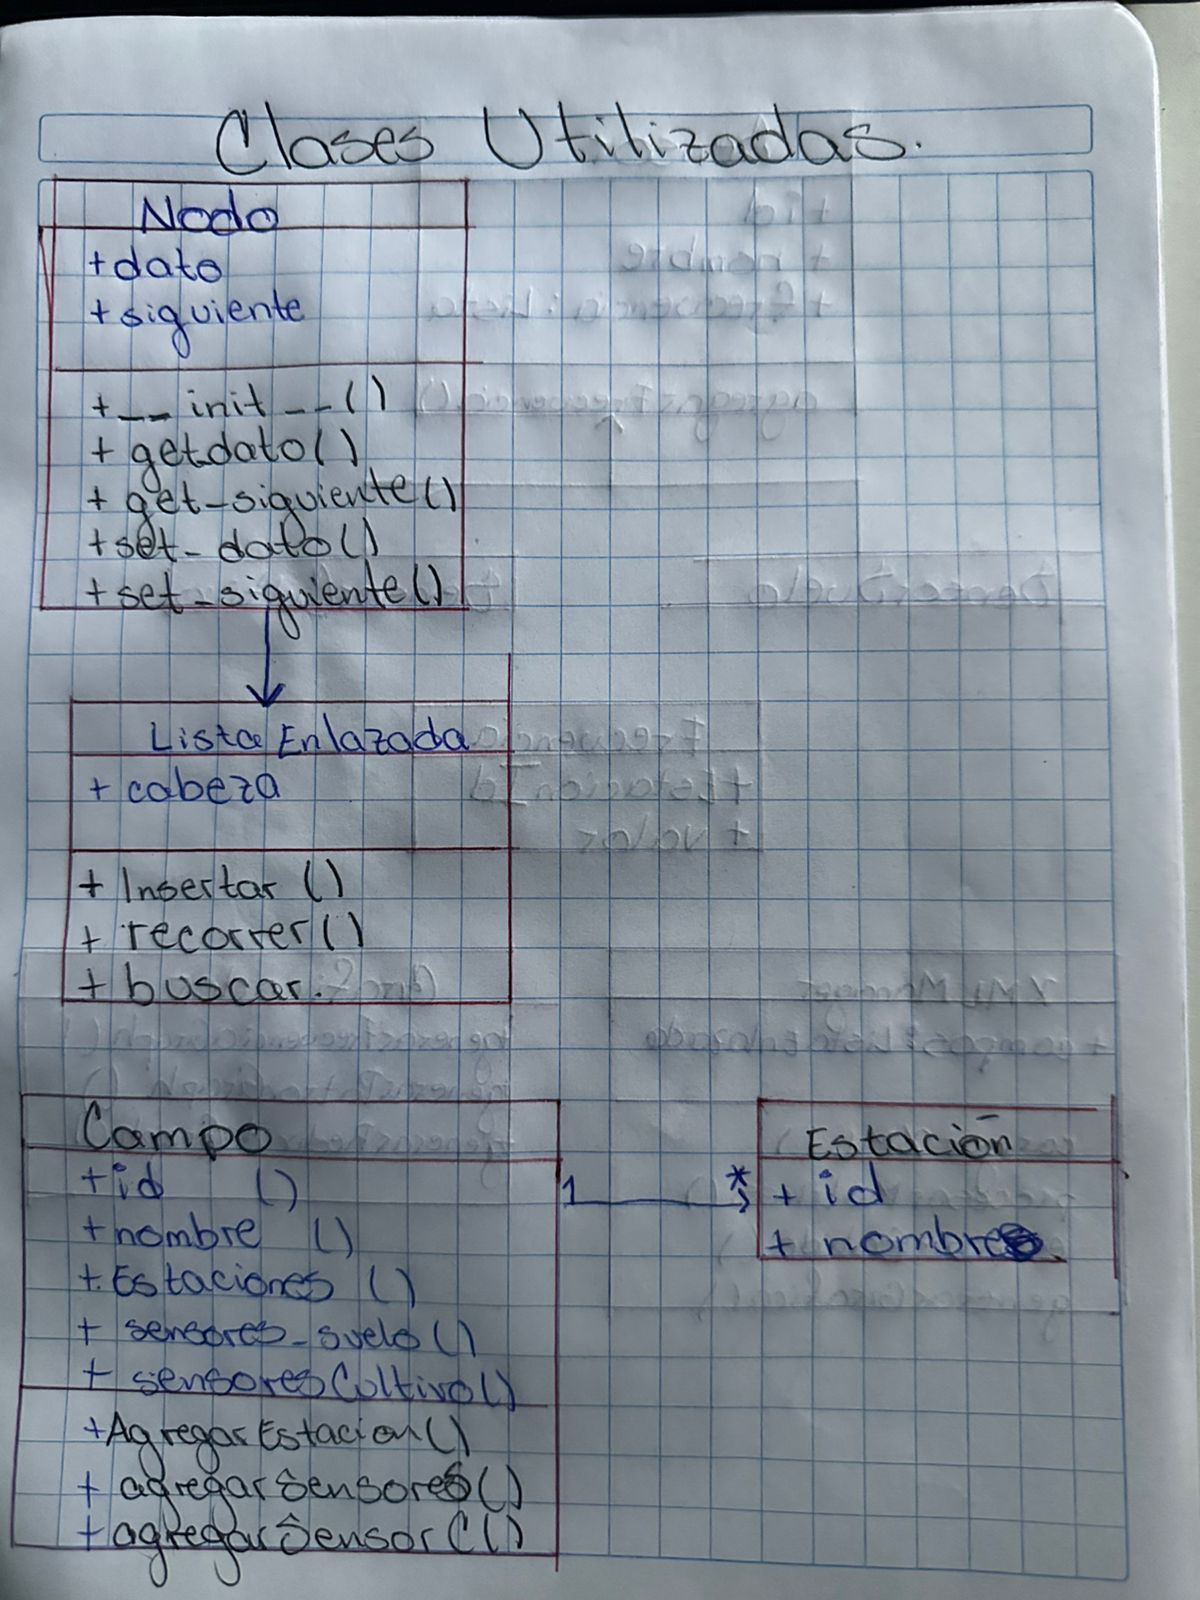 Clases Utilizadas.
Nodo
+dato
+siguiente
+__init__()
+ getdato()
+ get-siguiente()
+set-dato()
+set-siguiente()
Lista Enlazada
+ cabeza
+ Insertar ()
+ recorrer()
+ buscar.
Campo
+id ()
+nombre ()
+Estaciones ()
+ sensores_suelo()
+ sensoresCultivo()
+AgregarEstacion()
+ agregarSensores()
+agregarSensorC()
1 *
Estación
+ id
+ nombre